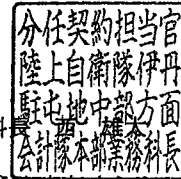 分任契約担当官
陸上自衛隊伊丹
駐屯地中部方面
科長 西 雄
会計隊本部業務科長